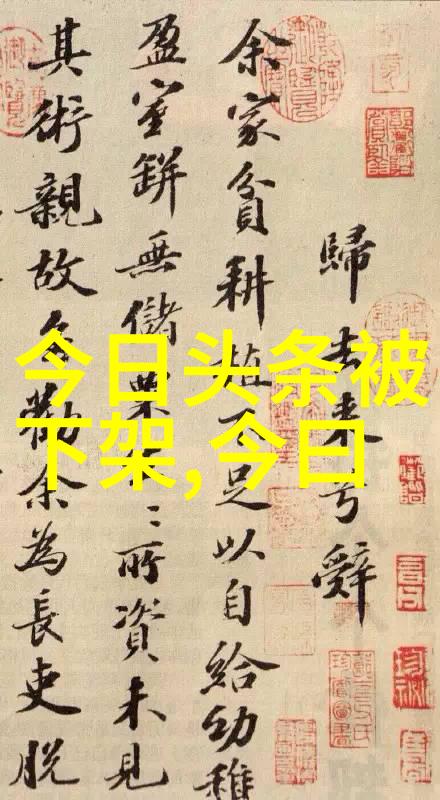 歸去來兮辭
余家貧耕植不足以自給幼稚
盈室缾無儲粟生〻所資未見
其術親故多勸余為長吏脫
今日头条被
下架,今日